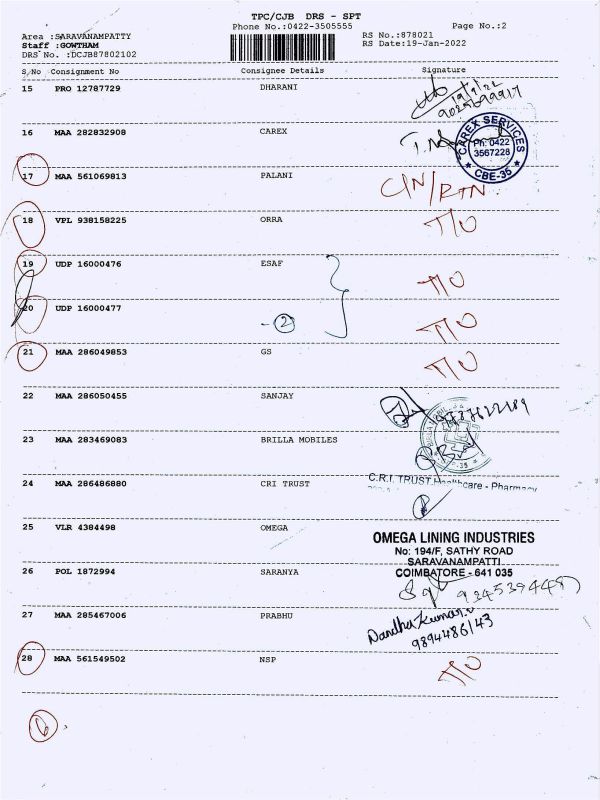 TPC/CJB DRS - SPT
Phone No.:0422-3505555 Page No.:2
Area :SARAVANAMPATTY RS No.:878021
Staff :GOWTHAM RS Date:19-Jan-2022
DRS No. :DCJB87802102
S.No Consignment No Consignee Details Signature
15 PRO 12787729 DHARANI
16 MAA 282832908 CAREX
CAREX SERVICES
Ph: 0422
3567228
CBE-35
17 MAA 561069813 PALANI CIN/RTN
18 VPL 938158225 ORRA T/O
19 UDP 16000476 ESAF T/O
20 UDP 16000477 - 2 T/O
21 MAA 286049853 GS T/O
22 MAA 286050455 SANJAY
23 MAA 283469083 BRILLA MOBILES
24 MAA 286486880 CRI TRUST C.R.I. TRUST Healthcare - Pharmacy
25 VLR 4384498 OMEGA OMEGA LINING INDUSTRIES
No: 194/F, SATHY ROAD
SARAVANAMPATTI
26 POL 1872994 SARANYA COIMBATORE - 641 035
27 MAA 285467006 PRABHU
28 MAA 561549502 NSP T/O